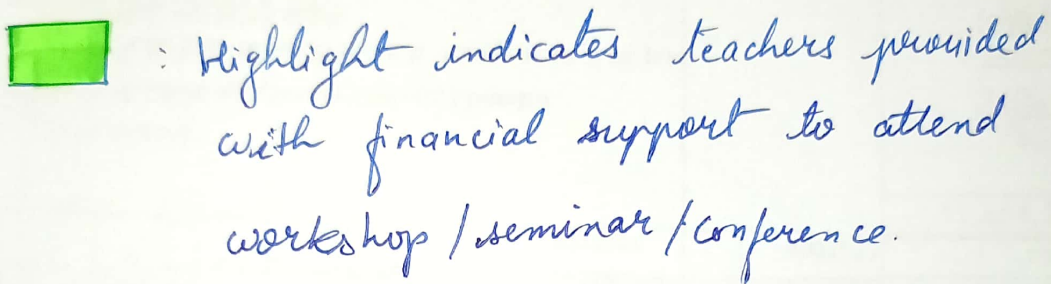 : Highlight indicates teachers provided
with financial support to attend
workshop / seminar / conference.